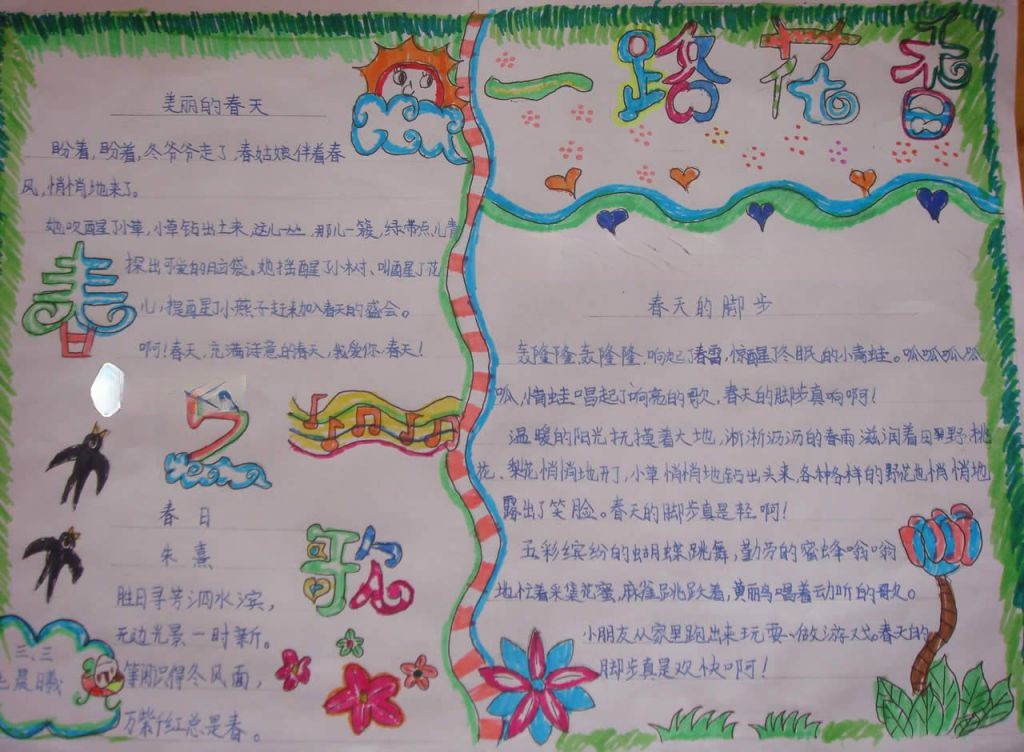 美丽的春天
盼着,盼着,冬爷爷走了,春姑娘伴着春
风,悄悄地来了。
她吹醒了小草,小草钻出土来,这儿一丛,那儿一簇,绿带点儿青
探出可爱的脑袋。她摇醒了小树、叫醒了花
儿,提醒了小燕子赶来加入春天的盛会。
啊!春天,充满诗意的春天,我爱你,春天!
春
之
歌
春日
朱熹
胜日寻芳泗水滨,
无边光景一时新。
等闲识得冬风面,
万紫千红总是春。
三、三
晨曦
一路花香
春天的脚步
轰隆隆,轰隆隆,响起了春雷,惊醒了冬眠的小青蛙。呱呱呱呱
呱,青蛙唱起了响亮的歌,春天的脚步真响啊!
温暖的阳光抚摸着大地,淅淅沥沥的春雨滋润着田野,桃
花、梨花悄悄地开了,小草悄悄地钻出头来,各种各样的野花也悄悄地
露出了笑脸。春天的脚步真是轻啊!
五彩缤纷的蝴蝶跳舞,勤劳的蜜蜂嗡嗡
地忙着采集花蜜,麻雀跳跃着,黄丽鸟唱着动听的歌。
小朋友从家里跑出来玩耍、做游戏。春天的
脚步真是欢快啊!